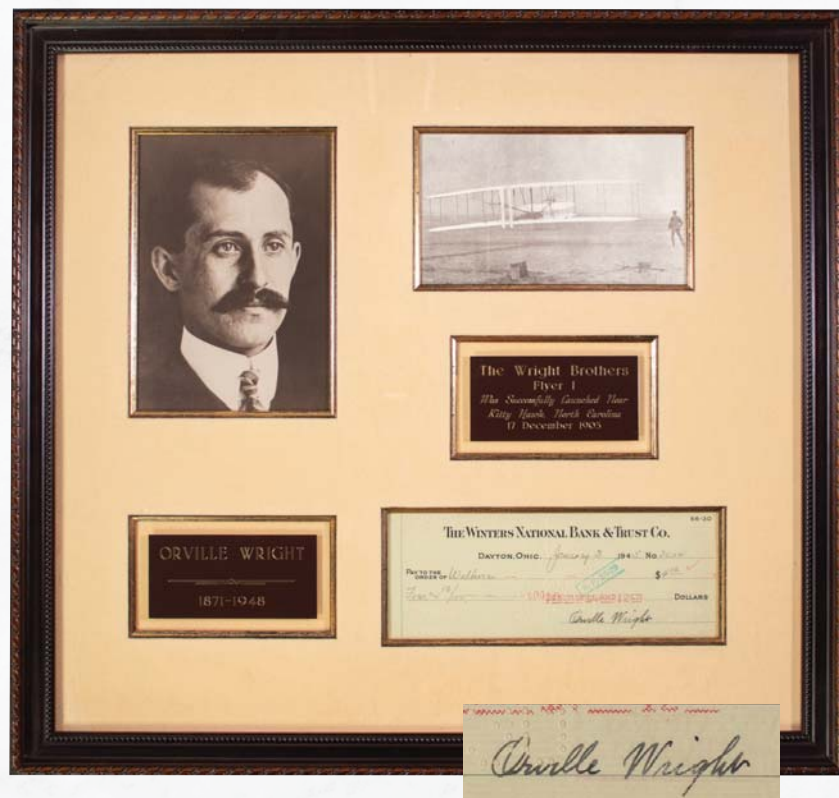 The Wright Brothers
Flyer I
Was Successfully Launched Near
Kitty Hawk, North Carolina
17 December 1903
ORVILLE WRIGHT
1871-1948
56-20
THE WINTERS NATIONAL BANK & TRUST CO.
DAYTON, OHIO. January 2 1945 No.
PAY TO THE
ORDER OF $
DOLLARS
Orville Wright
Orville Wright